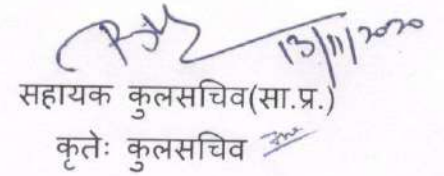 13/11/2020
सहायक कुलसचिव(सा.प्र.)
कृतेः कुलसचिव